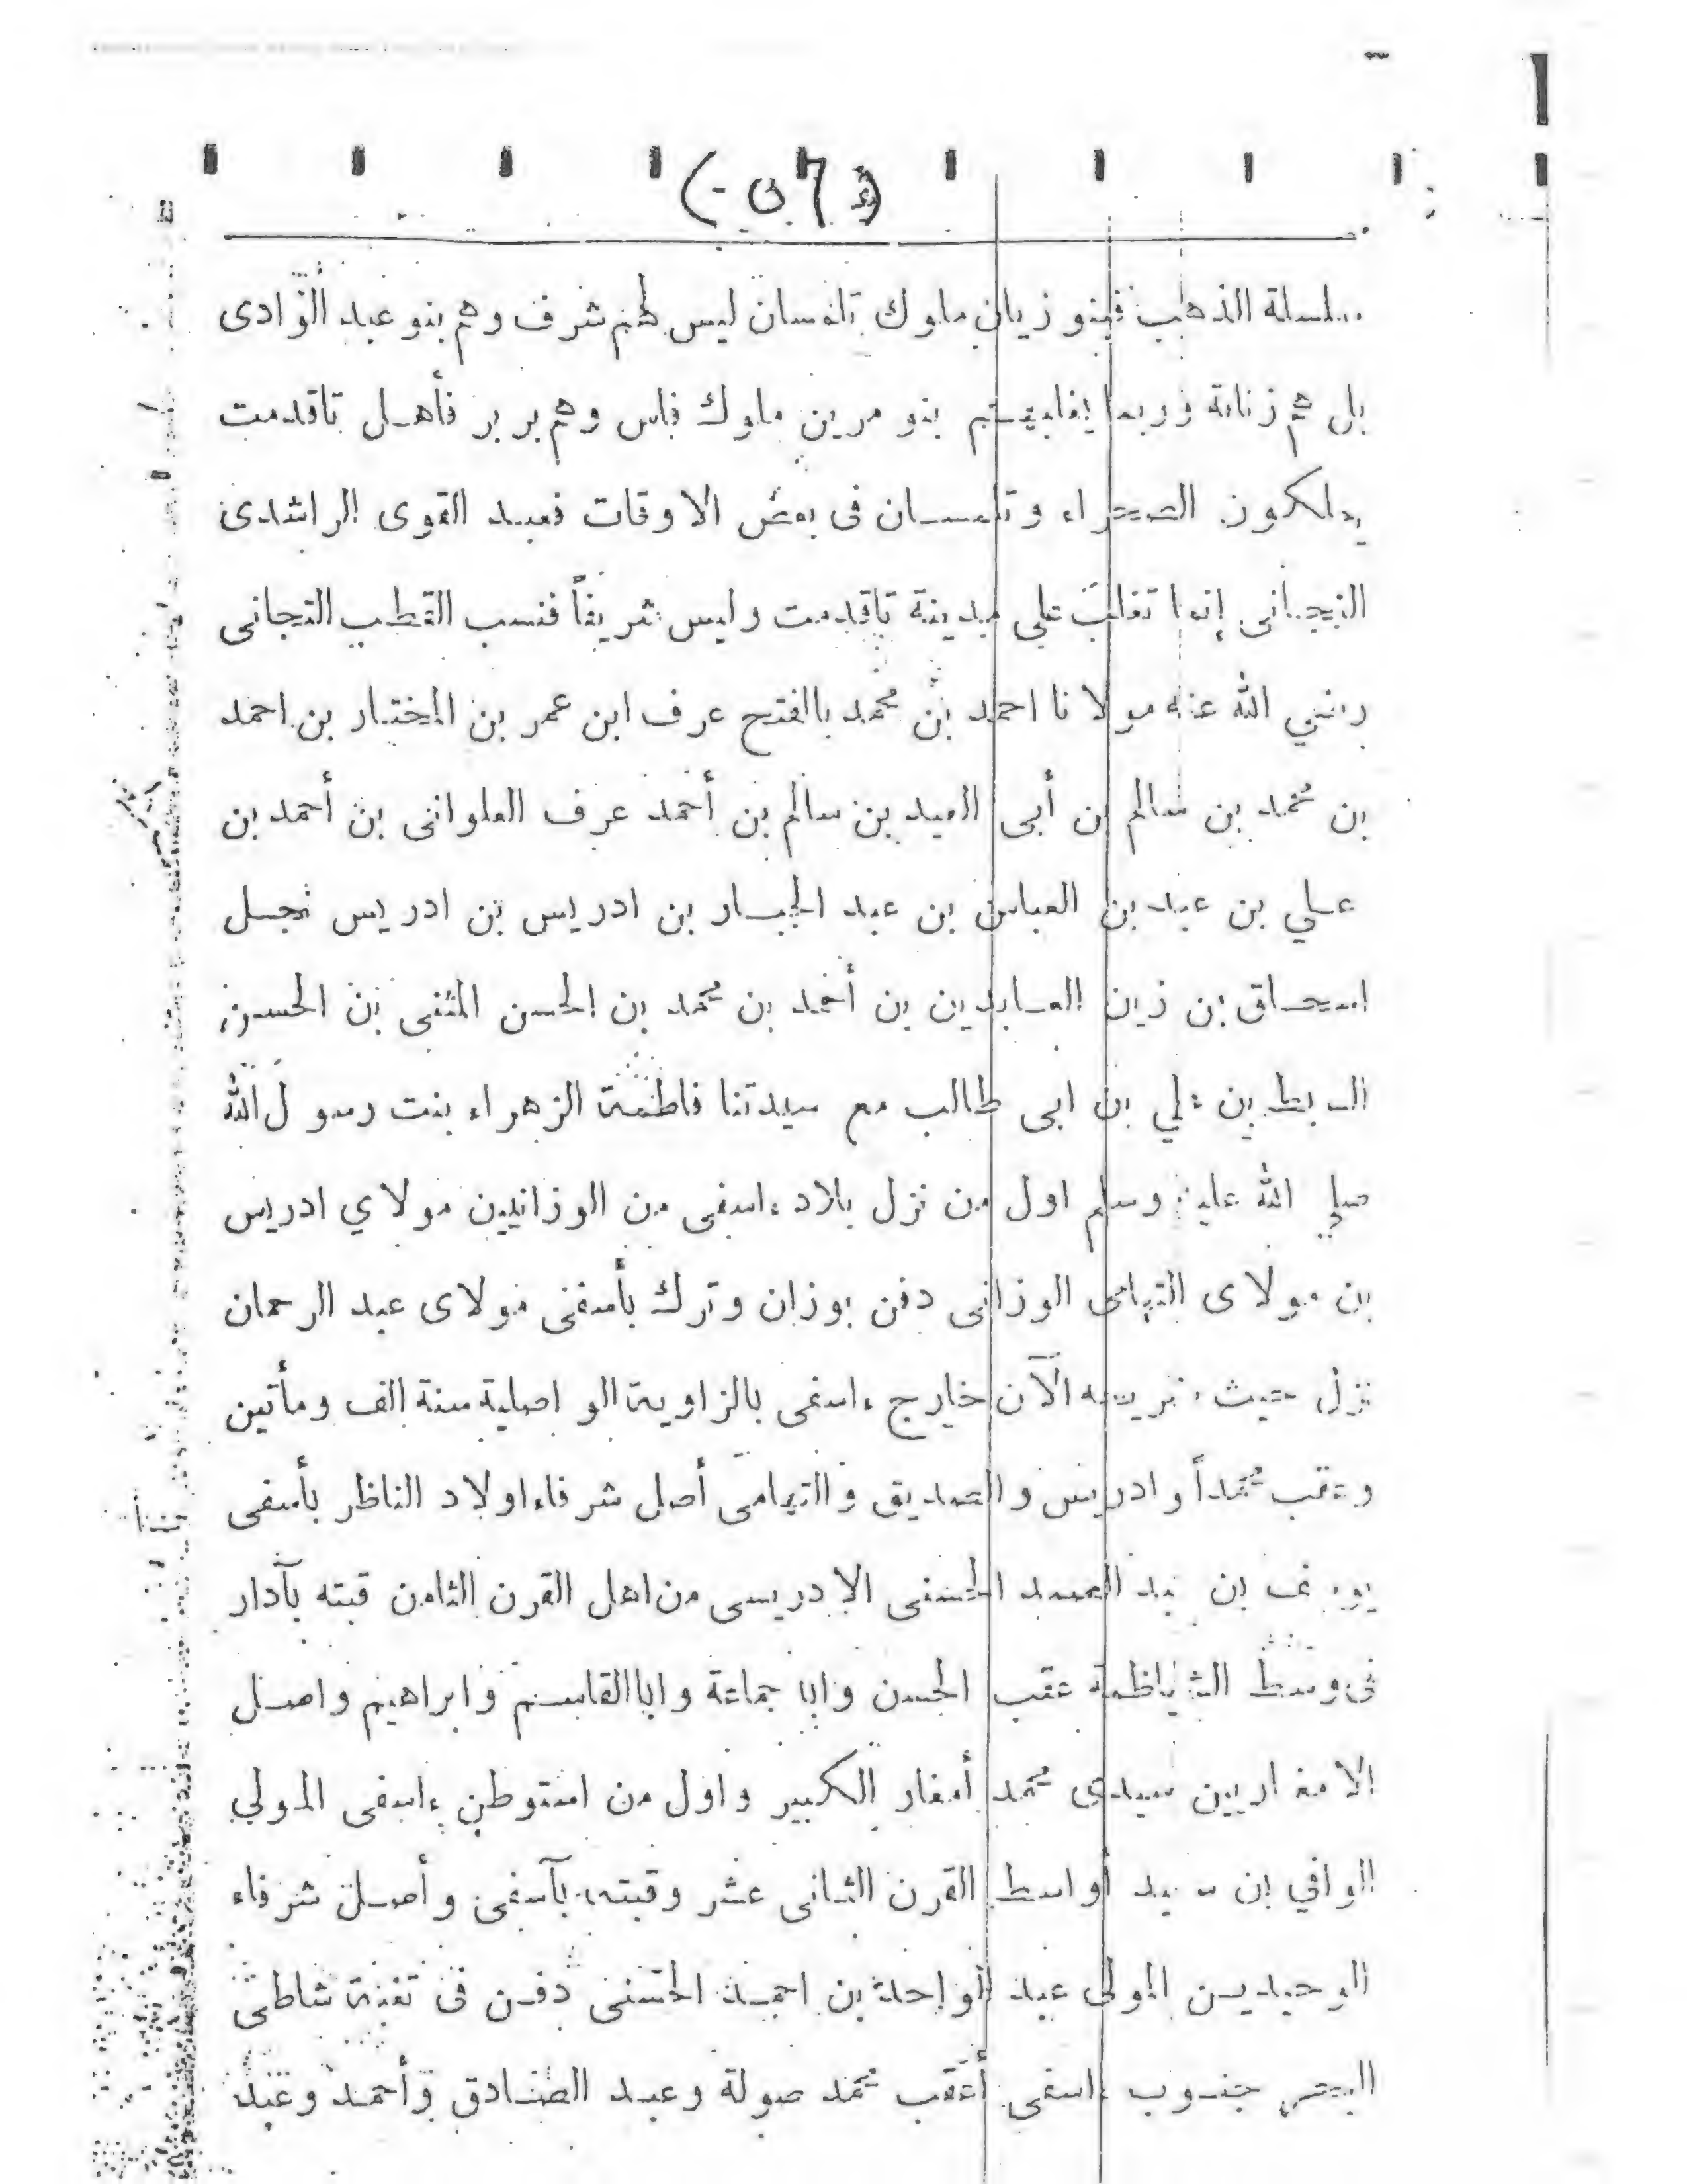 سلسلة الذهب فبنو زيان ملوك تلمسان ليس لهم شرف وهم بنو عبد الوادى
بل هم زناتة وربما يغلبهم بنو مرين ملوك فاس وهم بربر فأهل تاقدمت
يملكون الصحراء وتلمسان فى بعض الاوقات فعبد القوى الراشدى
التجانى إنما تغلب على مدينة تاقدمت وليس شريفاً فنسب القطب التجانى
رضي الله عنه مولانا احمد بن محمد بالفتح عرف ابن عمر بن المختار بن احمد
بن محمد بن سالم بن أبى العيد بن سالم بن أحمد عرف العلوانى بن أحمد بن
علي بن عبد بن العباس بن عبد الجبار بن ادريس بن ادريس نجل
اسحاق بن زين العابدين بن أحمد بن محمد بن الحسن المثنى بن الحسن
السبط بن علي بن ابى طالب مع سيدتنا فاطمة الزهراء بنت رسول الله
صلى الله عليه وسلم اول من نزل بلاد ءاسفى من الوزانيين مولاي ادريس
بن مولاى التهامى الوزانى دفن بوزان وترك بأسفى مولاى عبد الرحمان
نزل حيث ضريحه الآن خارج ءاسفى بالزاوية الواصلية سنة الف ومأتين
وعقب محمداً وادريس والصديق والتهامى أصل شرفاء اولاد الناظر بأسفى
يوسف بن عبد الصمد الحسنى الادريسى من اهل القرن الثامن قبته بآدار
فى وسط الشياظمة عقب الحسن وابا جماعة وابا القاسم وابراهيم واصل
الامغاريين سيدى محمد أمغار الكبير واول من استوطن ءاسفى المولي
الوافي بن سعيد أواسط القرن الثانى عشر وقبته بآسفى وأصل شرفاء
الوحيديين المولى عبد الواحد بن احمد الحسنى دفن فى شاطى
البحر جنوب ءاسفى أعقب محمد صولة وعبد الصادق وأحمد وعبد